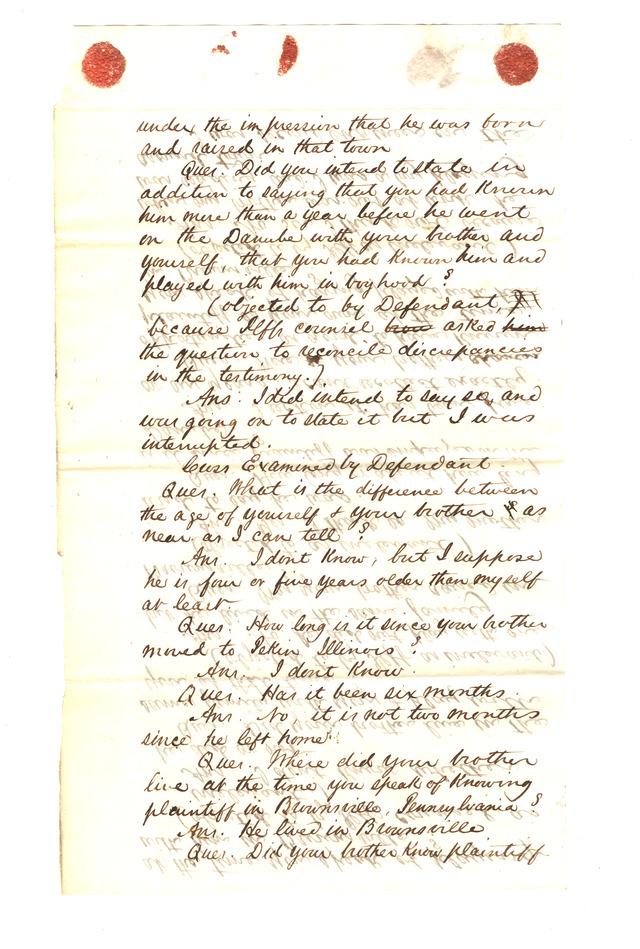 under the impression that he was born
and raised in that town
Ques. Did you intend to state in
addition to saying that you had Known
him more than a year before he went
on the Danube with your brother and
yourself, that you had Known him and
played with him in boyhood?
(objected to by Defendant,
because Plffs counsel asked him
the question to reconcile discrepancies
in the testimony.)
Ans. I did intend to say so, and
was going on to state it but I was
interrupted.
Cross Examined by Defendant.
Ques. What is the difference between
the age of yourself & your brother as
near as I can tell?
Ans. I dont Know, but I suppose
he is four or five years older than myself
at least.
Ques. How long is it since your brother
moved to Pekin Illinois?
Ans. I dont Know.
Ques. Has it been six months.
Ans. No, it is not two months
since he left home.
Ques. Where did your brother
live at the time you speak of Knowing
plaintiff in Brownsville, Pennsylvania?
Ans. He lived in Brownsville.
Ques. Did your brother Know plaintiff